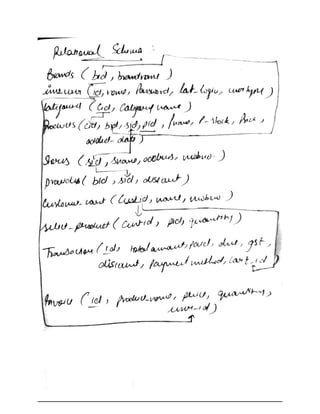 Relational Schema :
Brands ( bid , brandname )
inv_user ( id, name, Password, last_login, usertype )
Categories ( Cid, Category name )
Products ( cid, bid, sid, pid , Pname, P-stock, Price ,
added-date )
Stores ( sid , sname, address, mobno )
provides ( bid , sid, discount )
Customer cart ( Custid, name, mobno )
select-product ( Custid , pid, quantity )
Transaction ( id, total amount, Paid, due, gst ,
discount, Payment method, Cart_id )
Invoice ( id , product-name, price, quantity ,
)